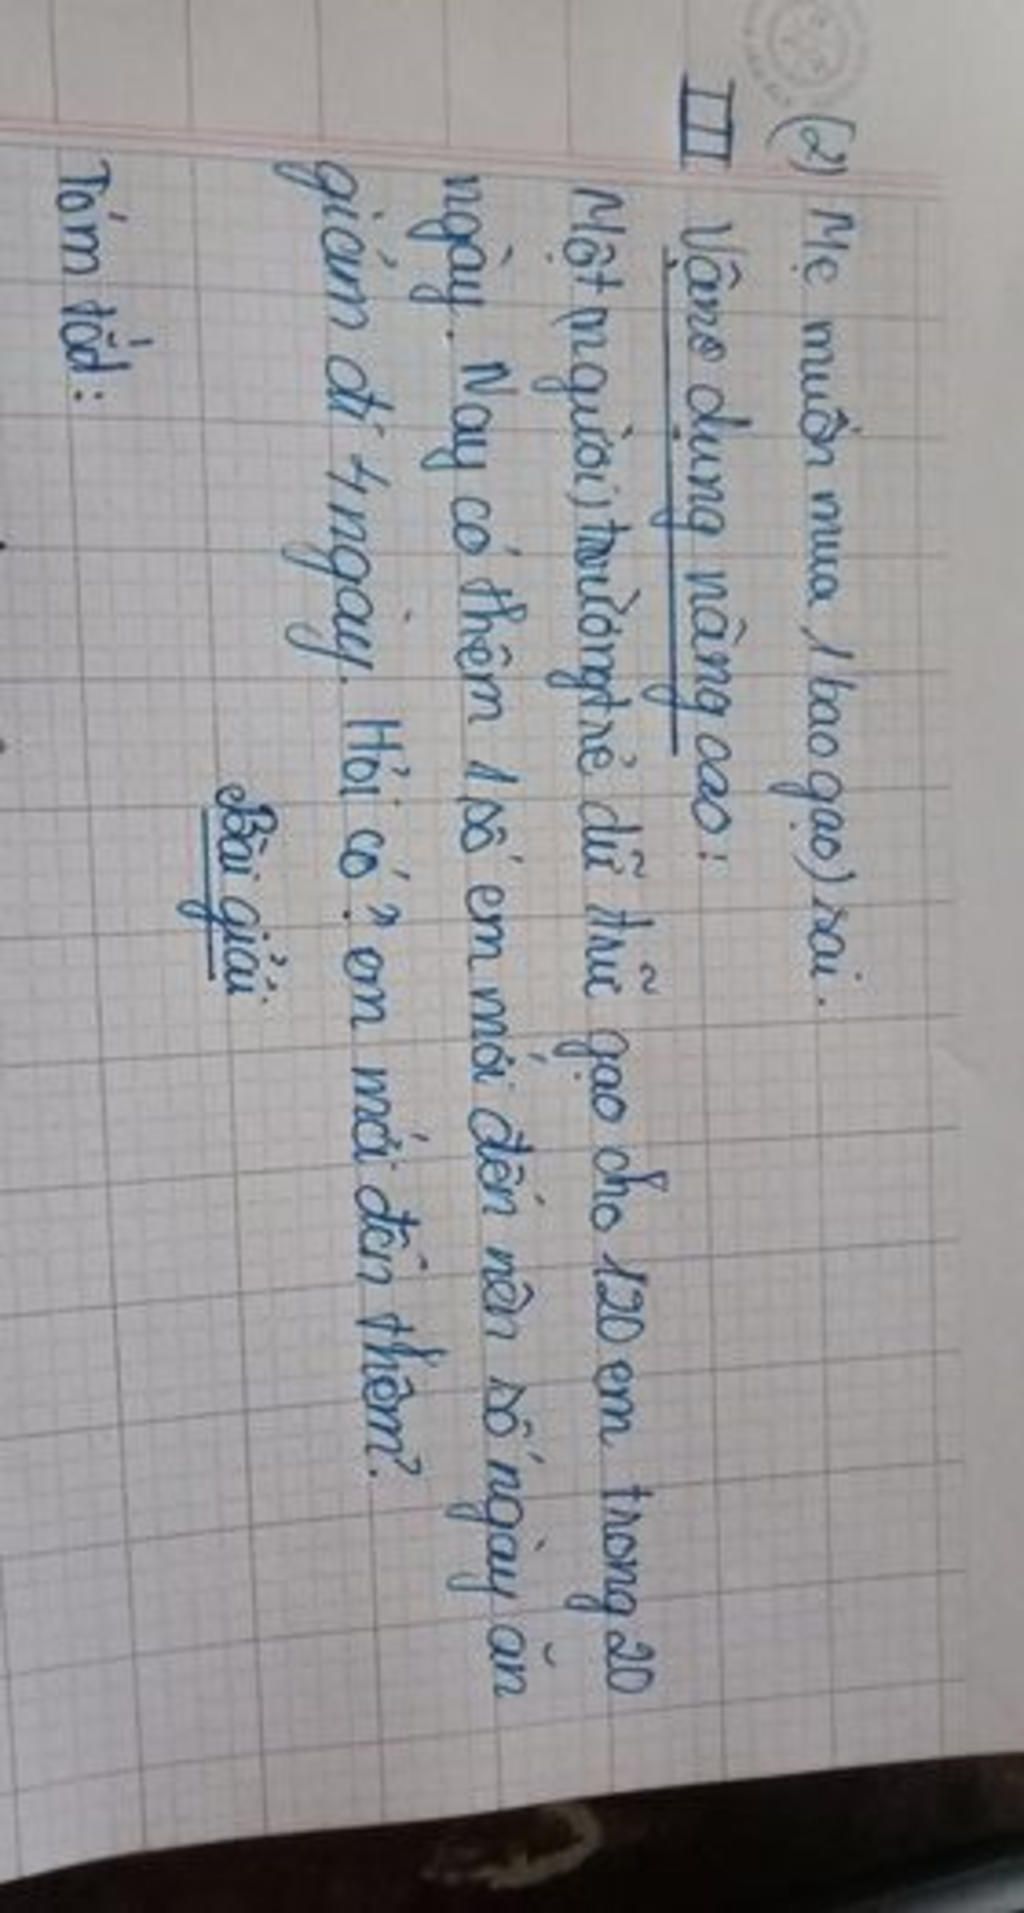 (2) Mẹ muốn mua 1 bao gạo) sai.
III Vâng dụng nâng cao:
Một (người) trường trẻ dữ trữ gạo cho 120 em trong 20
ngày. Nay có thêm 1 số em mới đến nên số ngày ăn
giảm đi 4 ngày. Hỏi có ? em mới đến thêm?
Bài giải
Tóm tắt: